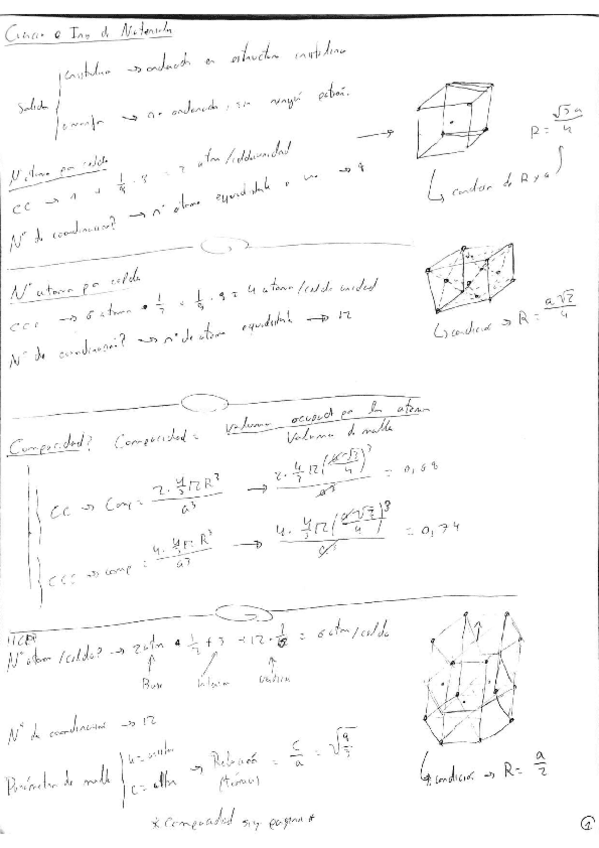 Ciencia e Ing de Materiales
cristalino → ordenado en estructura cristalina
Solido
amorfo → no ordenado, sin ningún patrón.
R = √3a/4
Nº átomos por celda
CC → 1 + 1/8 · 8 = 2 atm/celda unidad
condición de R y a
Nº de coordinación? → nº átomos equidistante a uno → 8
Nº atomos por celda
CCC → 6 atomos · 1/2 + 1/8 · 8 = 4 atomos/celda unidad
Nº de coordinación? → nº de atomos equidistante → 12
condición → R = a√2/4
Compacidad? Compacidad = Volumen ocupado por los atomos / Volumen de malla
CC → Comp = 2 · 4/3 π R³ / a³ → 2 · 4/3 π (a√3/4)³ / a³ = 0,68
CCC → comp = 4 · 4/3 π R³ / a³ → 4 · 4/3 π (a√2/4)³ / a³ = 0,74
HCP
Nº atomos/celda? → 2 atm · 1/2 + 3 + 12 · 1/6 = 6 atm/celda
Base
Nº de coordinación → 12
Parámetros de malla
c = altura → Relación = c/a = √
(teórica)
condición → R = a/2
* Compacidad sig pagina *
1